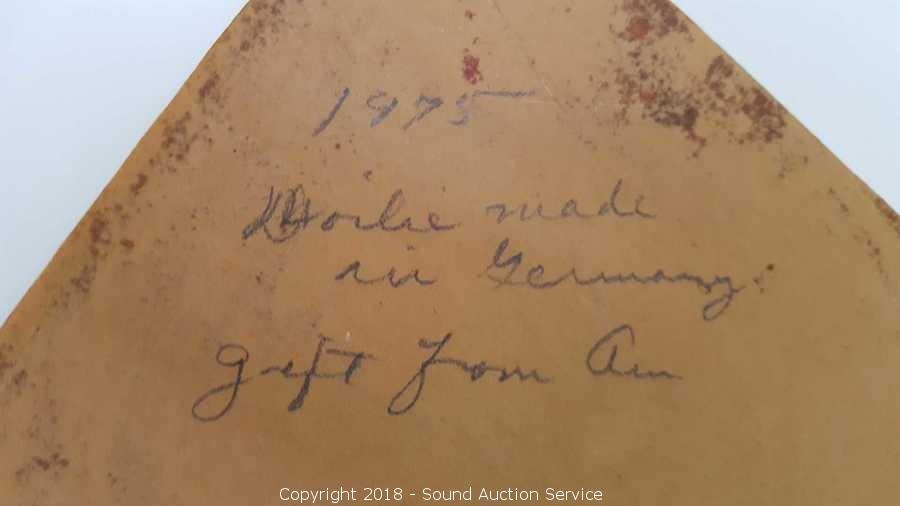 1975
Doilie made
in Germany.
gift from
Copyright 2018 - Sound Auction Service